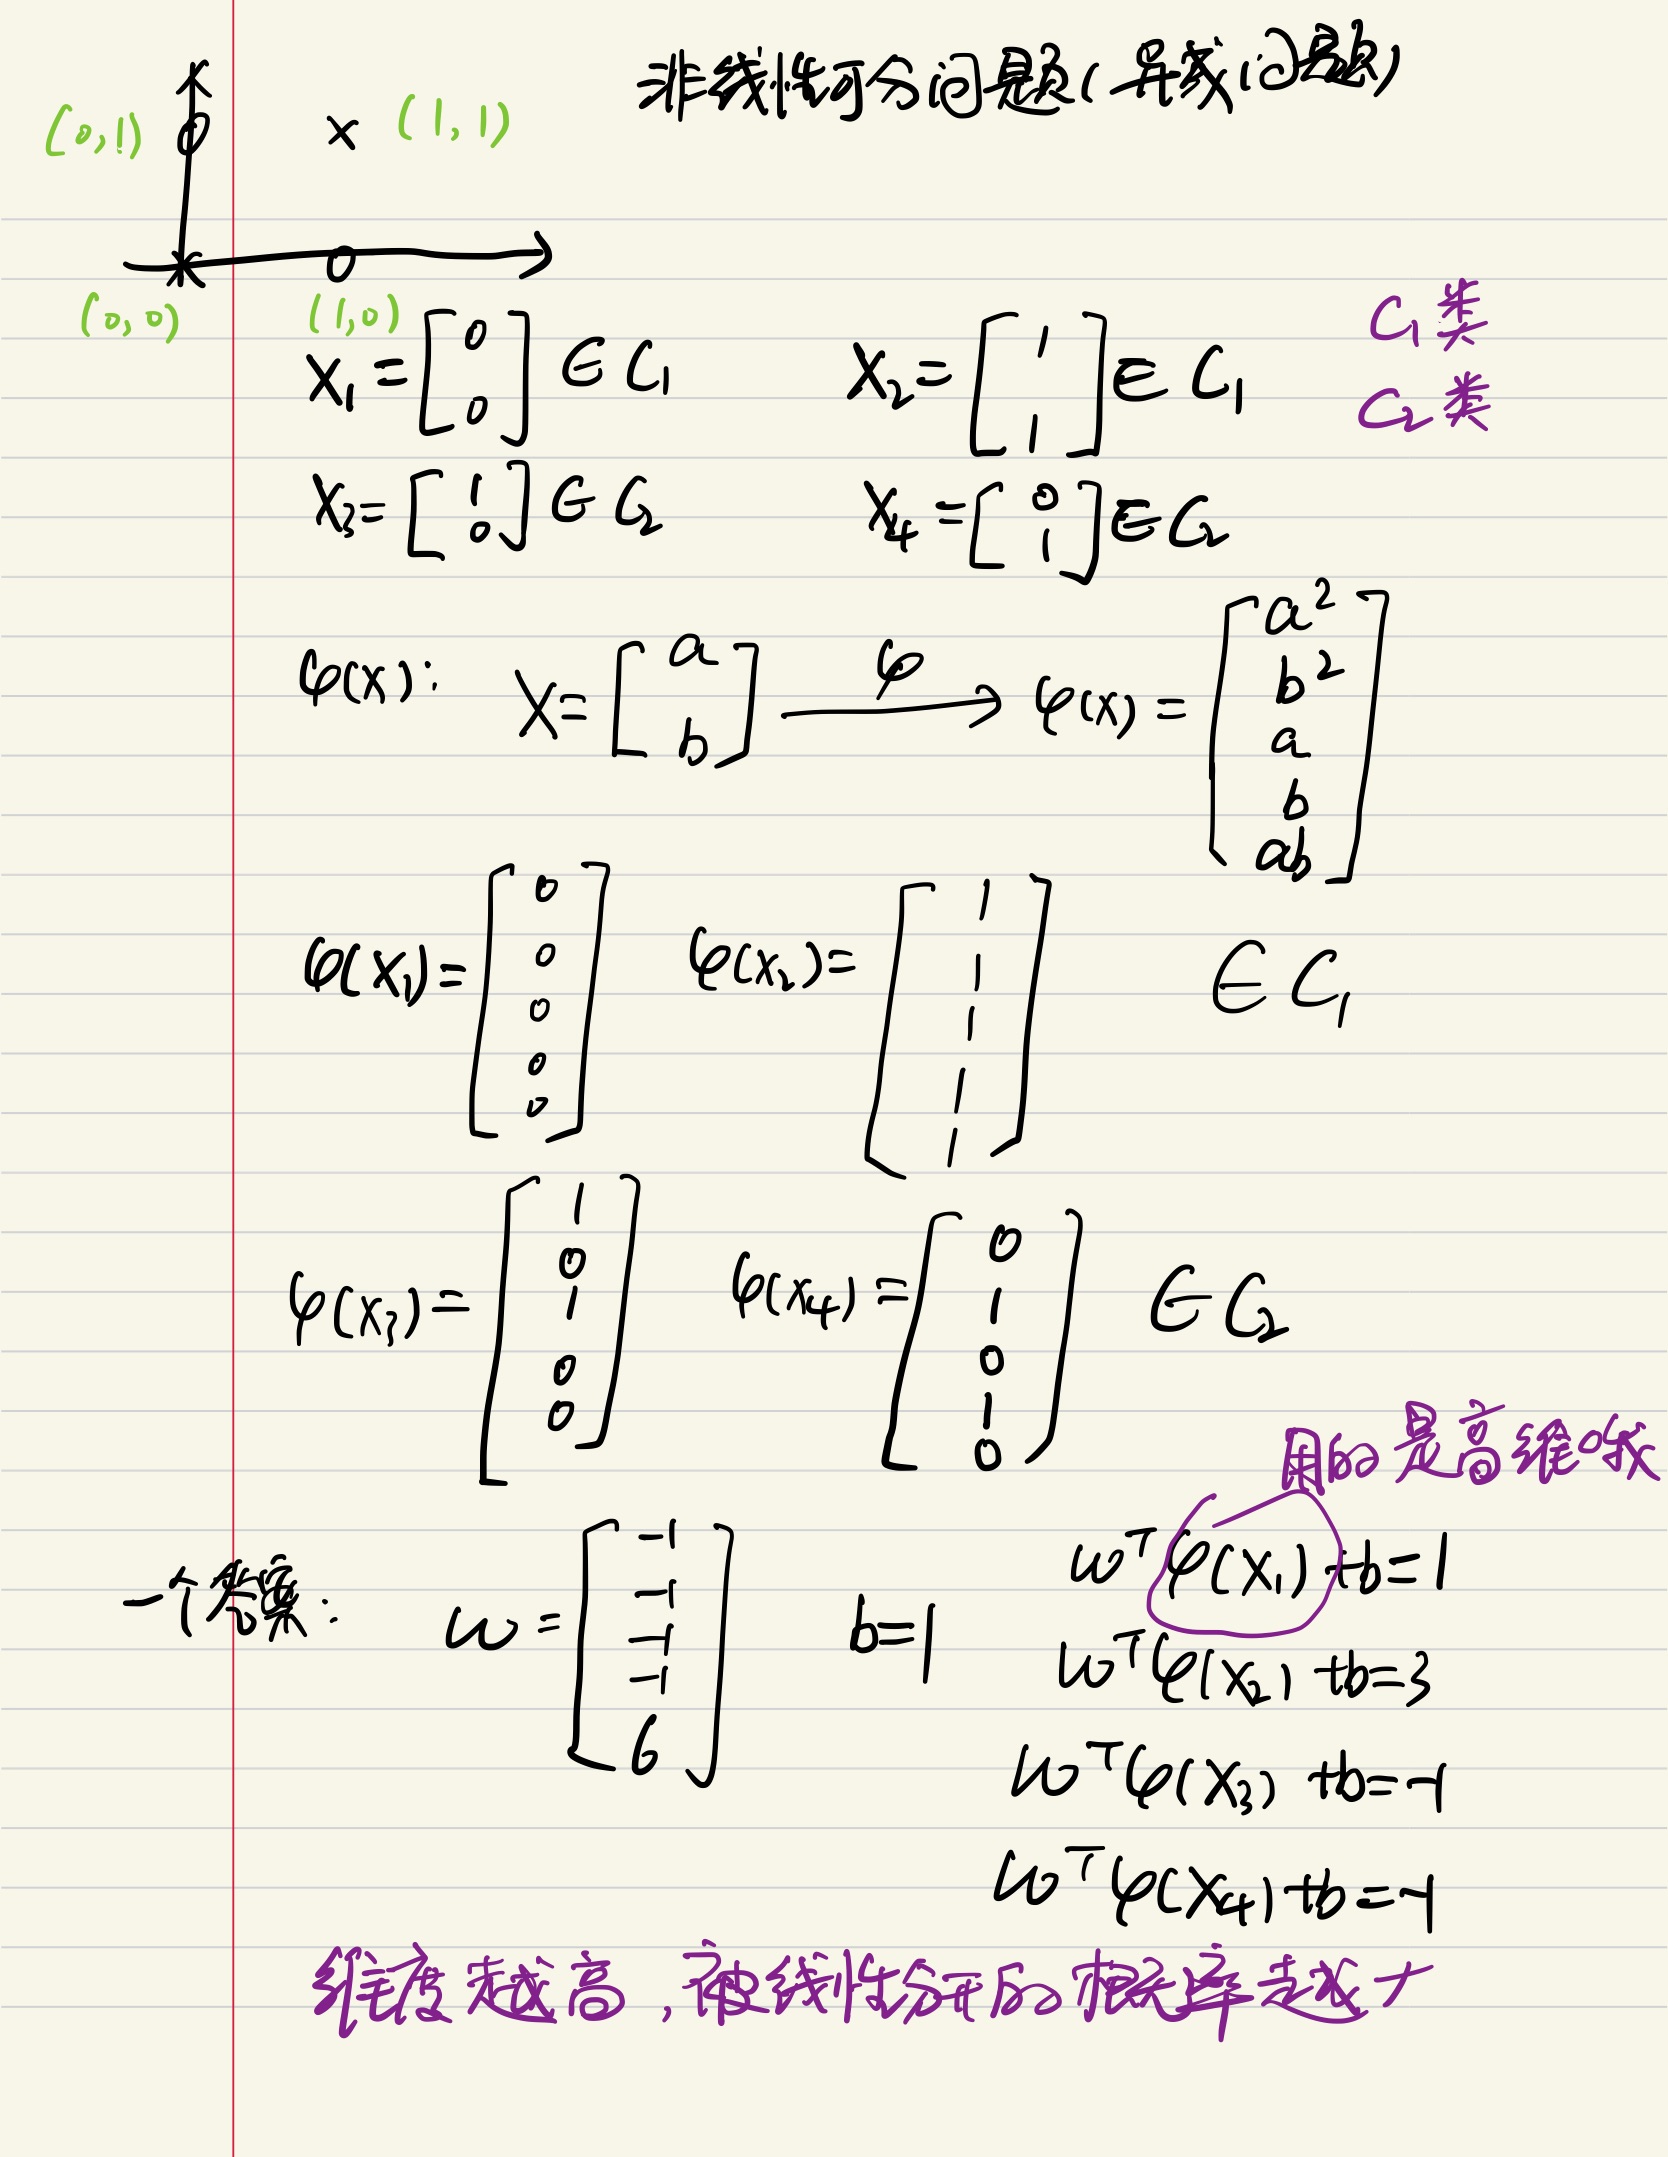 非线性可分问题(异或问题)
(0,1) (1,1)
(0,0) (1,0)
C₁类
C₂类
X₁ = [0 0] ∈ C₁ X₂ = [1 1] ∈ C₁
X₃ = [1 0] ∈ C₂ X₄ = [0 1] ∈ C₂
φ(x): X = [a b] φ→ φ(x) = [a² b² a b ab]
φ(x₁) = [0 0 0 0 0] φ(x₂) = [1 1 1 1 1] ∈ C₁
φ(x₃) = [1 0 1 0 0] φ(x₄) = [0 1 0 1 0] ∈ C₂
用的是高维哦
一个答案: ω = [-1 -1 -1 -1 6] b=1
ωᵀφ(x₁)+b=1
ωᵀφ(x₂)+b=3
ωᵀφ(x₃)+b=-1
ωᵀφ(x₄)+b=-1
维度越高,被线性分开的概率越大